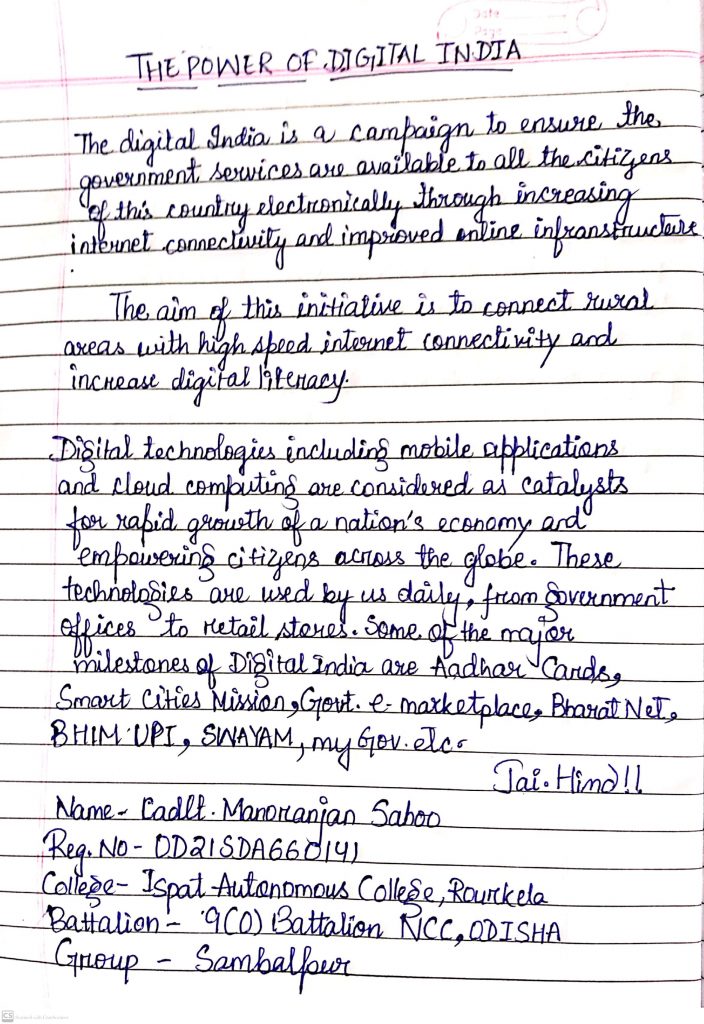 Date
Page
THE POWER OF DIGITAL INDIA
The digital India is a campaign to ensure the
government services are available to all the citizens
of this country electronically through increasing
internet connectivity and improved online infranstructure
.
The aim of this initiative is to connect rural
areas with high speed internet connectivity and
increase digital literacy.
Digital technologies including mobile applications
and cloud computing are considered as catalysts
for rapid growth of a nation's economy and
empowering citizens across the globe. These
technologies are used by us daily, from government
offices to retail stores. Some of the major
milestones of Digital India are Aadhar Cards,
Smart Cities Mission, Govt. e-marketplace, Bharat Net,
BHIM UPI, SWAYAM, my Gov. etc.
Jai. Hind!!
Name - Cadlt. Manoranjan Sahoo
Reg. No - OD21SDA660141
College - Ispat Autonomous College, Rourkela
Battalion - 9(O) Battalion NCC, ODISHA
Group - Sambalpur
CS Scanned with CamScanner